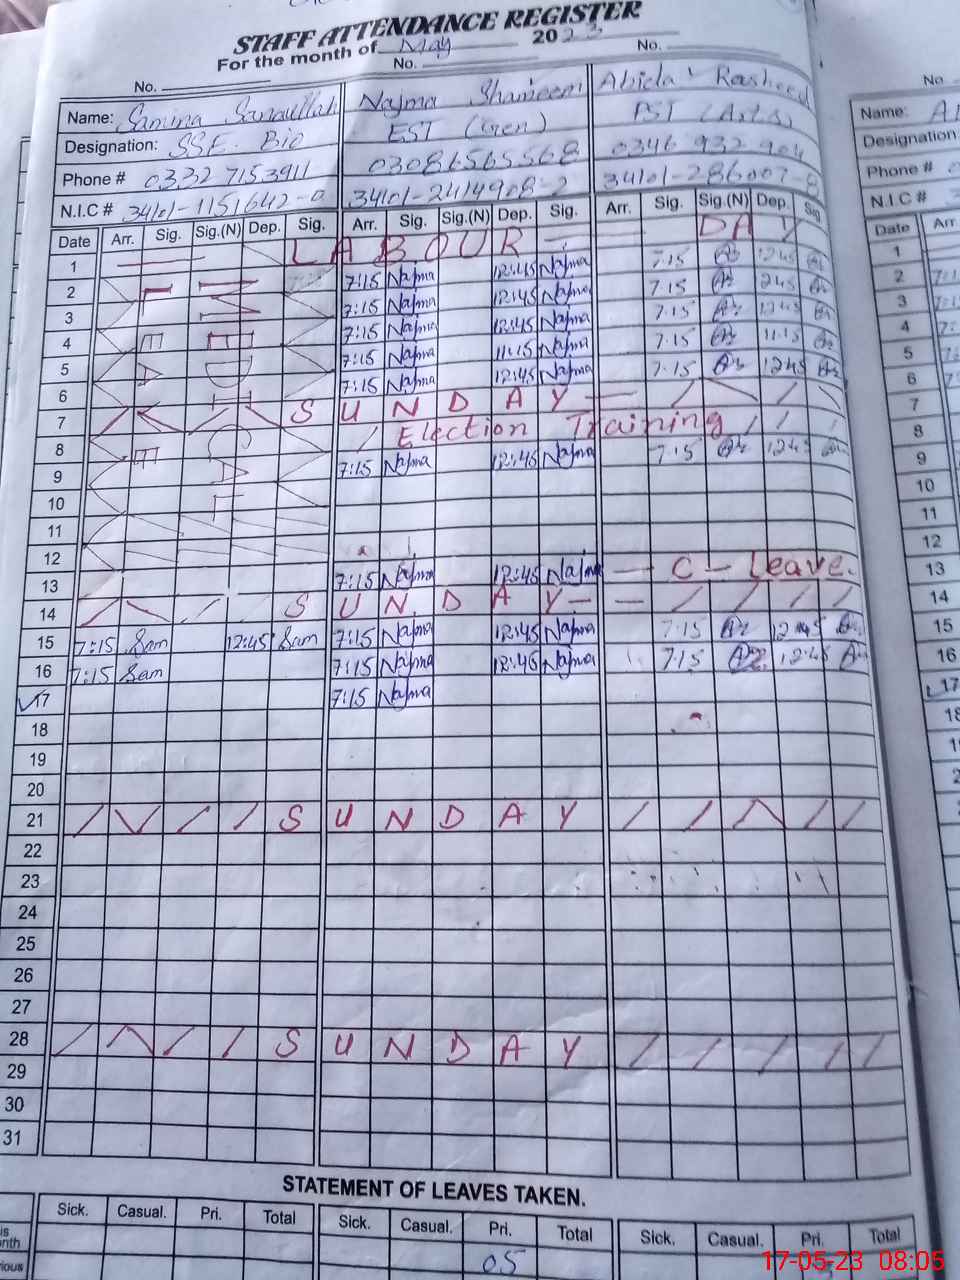 STAFF ATTENDANCE REGISTER
For the month of May 2023
No. No. No.
Name: Samina Sanaullah Najma Shameem Abida Rasheed
Designation: SSE. Bio EST (Gen) PST (Arts)
Phone # 0332 7153911 03086565568 0346 932 904
N.I.C # 34101-1151642-0 34101-2414908-2 34101-286007-8
Date Arr. Sig. Sig.(N) Dep. Sig. Arr. Sig. Sig.(N) Dep. Sig. Arr. Sig. Sig.(N) Dep. Sig
1 LABOUR DAY
2 7:15 Najma 12:45 Najma 7:15 12:45
3 7:15 Najma 12:45 Najma 7:15 12:45
4 7:15 Najma 12:45 Najma 7:15 12:45
5 7:15 Najma 11:15 Najma 7:15 11:15
6 7:15 Najma 12:45 Najma 7:15 12:45
7 SUNDAY
8 Election Training
9 7:15 Najma 12:45 Najma 7:15 12:45
10
11
12
13 7:15 Najma 12:45 Najma C - Leave.
14 SUNDAY
15 7:15 Sam 12:45 Sam 7:15 Najma 12:45 Najma 7:15 12:45
16 7:15 Sam 7:15 Najma 12:45 Najma 7:15 12:45
17 7:15 Najma
18
19
20
21 SUNDAY
22
23
24
25
26
27
28 SUNDAY
29
30
31
STATEMENT OF LEAVES TAKEN.
Sick. Casual. Pri. Total Sick. Casual. Pri. Total Sick. Casual. Pri. Total
05
17-05-23 08:05
No
Name:
Designation
Phone #
N.I.C #
Date Arr.
1
2
3
4
5
6
7
8
9
10
11
12
13
14
15
16
17